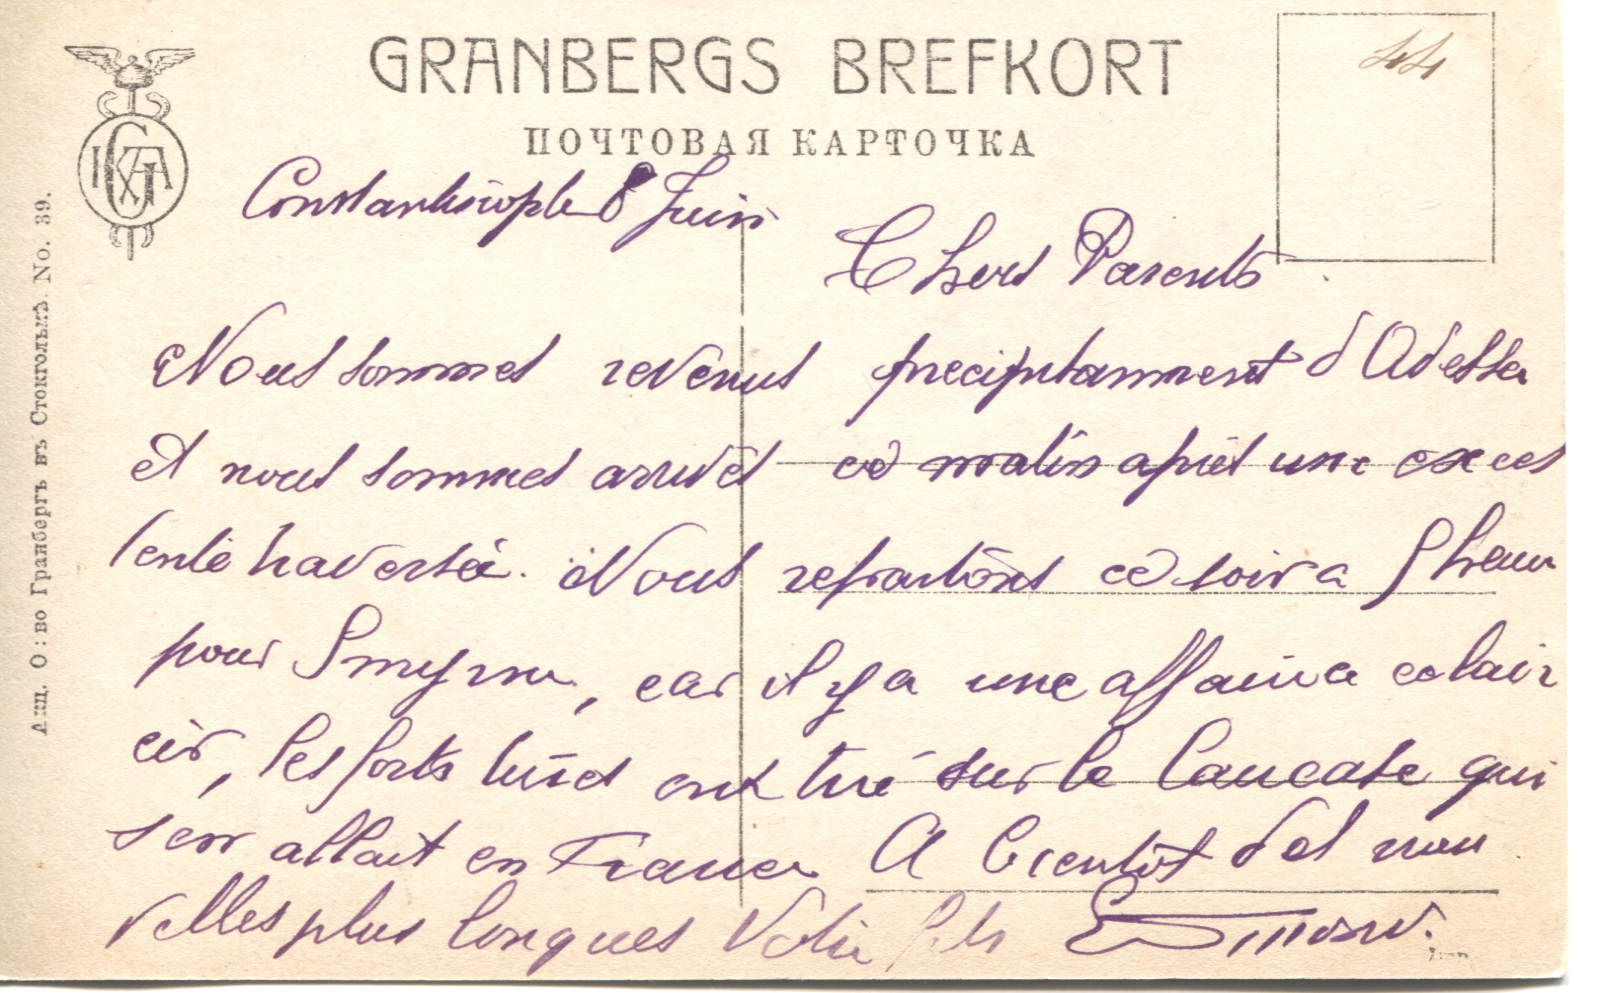 GRANBERGS BREFKORT
ПОЧТОВАЯ КАРТОЧКА
44
Акц. О: во Гранбергъ въ Стокгольмѣ. No. 39.
Constantinople 8 Juin
Chers Parents
Nous sommes revenus precipitamment d'Odessa
et nous sommes arrivés ce matin après une excel
lente traversée. Nous repartons ce soir a 5 heures
pour Smyrne, car il y a une affaire a eclair
cir, les forts turcs ont tiré sur le Caucase qui
s'en allait en France A bientôt des nou
velles plus longues Votre fils